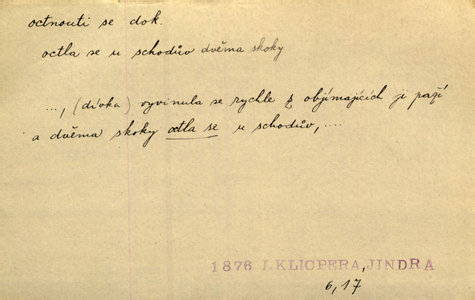 octnouti se dok.
octla se u schodův dvěma skoky
..., (dívka) vyvinula se rychle z objímajících ji paží
a dvěma skoky octla se u schodův, ....
1876 I.KLICPERA, JINDRA
6,17